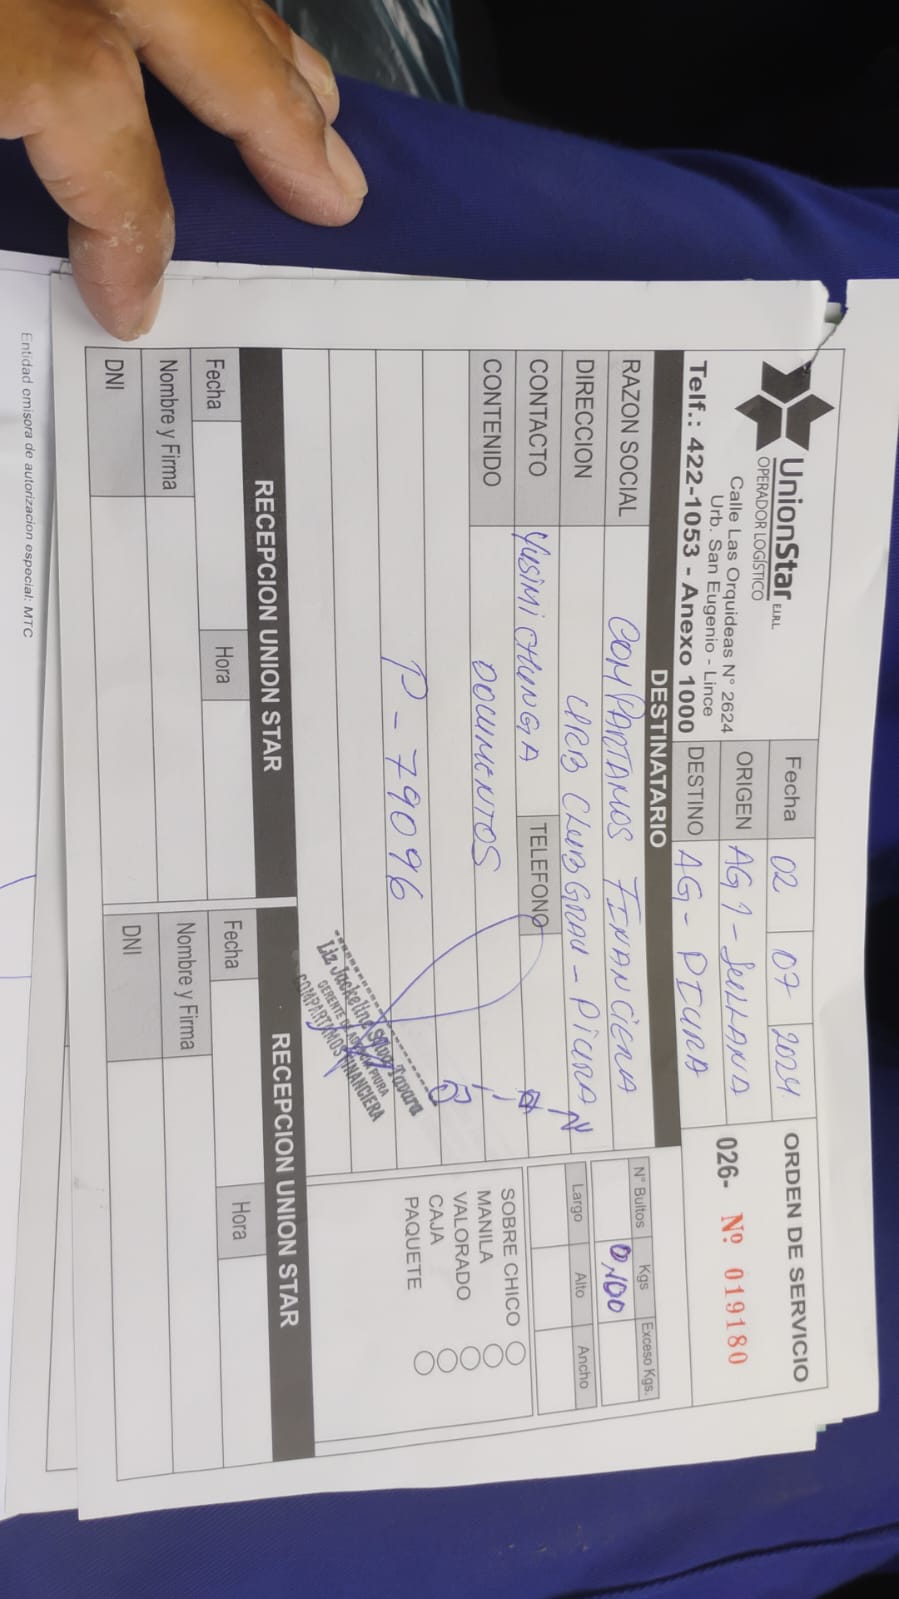 UnionStar E.I.R.L.
OPERADOR LOGÍSTICO
Calle Las Orquideas N° 2624
Urb. San Eugenio - Lince
Telf.: 422-1053 - Anexo 1000
Fecha 02 07 2024
ORIGEN AG 1 - SULLANA
DESTINO AG - PIURA
ORDEN DE SERVICIO
026- Nº 019180
DESTINATARIO
RAZON SOCIAL COMPARTAMOS FINANCIERA
DIRECCION URB CLUB GRAU - PIURA
CONTACTO YUSIMI CHUNGA TELEFONO
CONTENIDO DOCUMENTOS
P - 79096
N° Bultos Kgs Exceso Kgs.
0,100
Largo Alto Ancho
SOBRE CHICO
MANILA
VALORADO
CAJA
PAQUETE
Liz Jackeline Tavara
GERENTE DE AGENCIA PIURA
COMPARTAMOS FINANCIERA
RECEPCION UNION STAR
Fecha Hora
Nombre y Firma
DNI
RECEPCION UNION STAR
Fecha Hora
Nombre y Firma
DNI
Entidad emisora de autorizacion especial: MTC